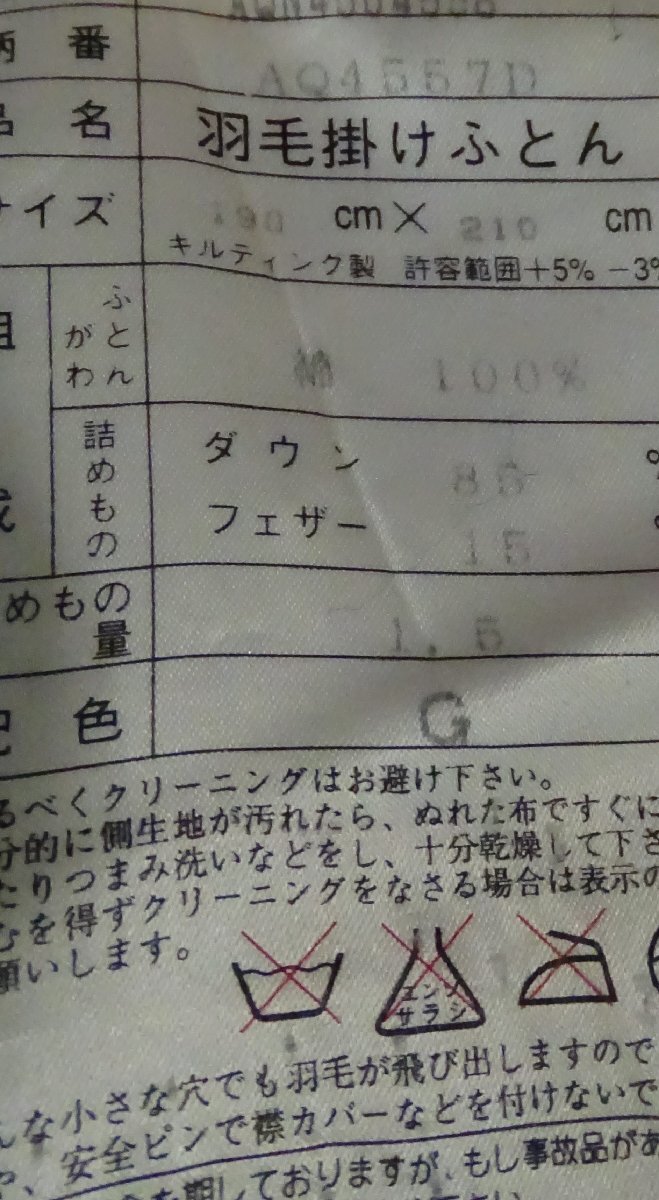 番
AQ4557D
名 羽毛掛けふとん
サイズ 190 cm × 210 cm
キルティング製 許容範囲+5% -3%
ふとんがわ 綿 100%
詰めもの ダウン 85 %
フェザー 15
めもの量 1.5
色 G
るべくクリーニングはお避け下さい。
分的に側生地が汚れたら、ぬれた布ですぐに
たりつまみ洗いなどをし、十分乾燥して下さ
むを得ずクリーニングをなさる場合は表示の
願いします。
エンソ
サラシ
んな小さな穴でも羽毛が飛び出しますので
、安全ピンで襟カバーなどを付けないで
を期しておりますが、もし事故品があ